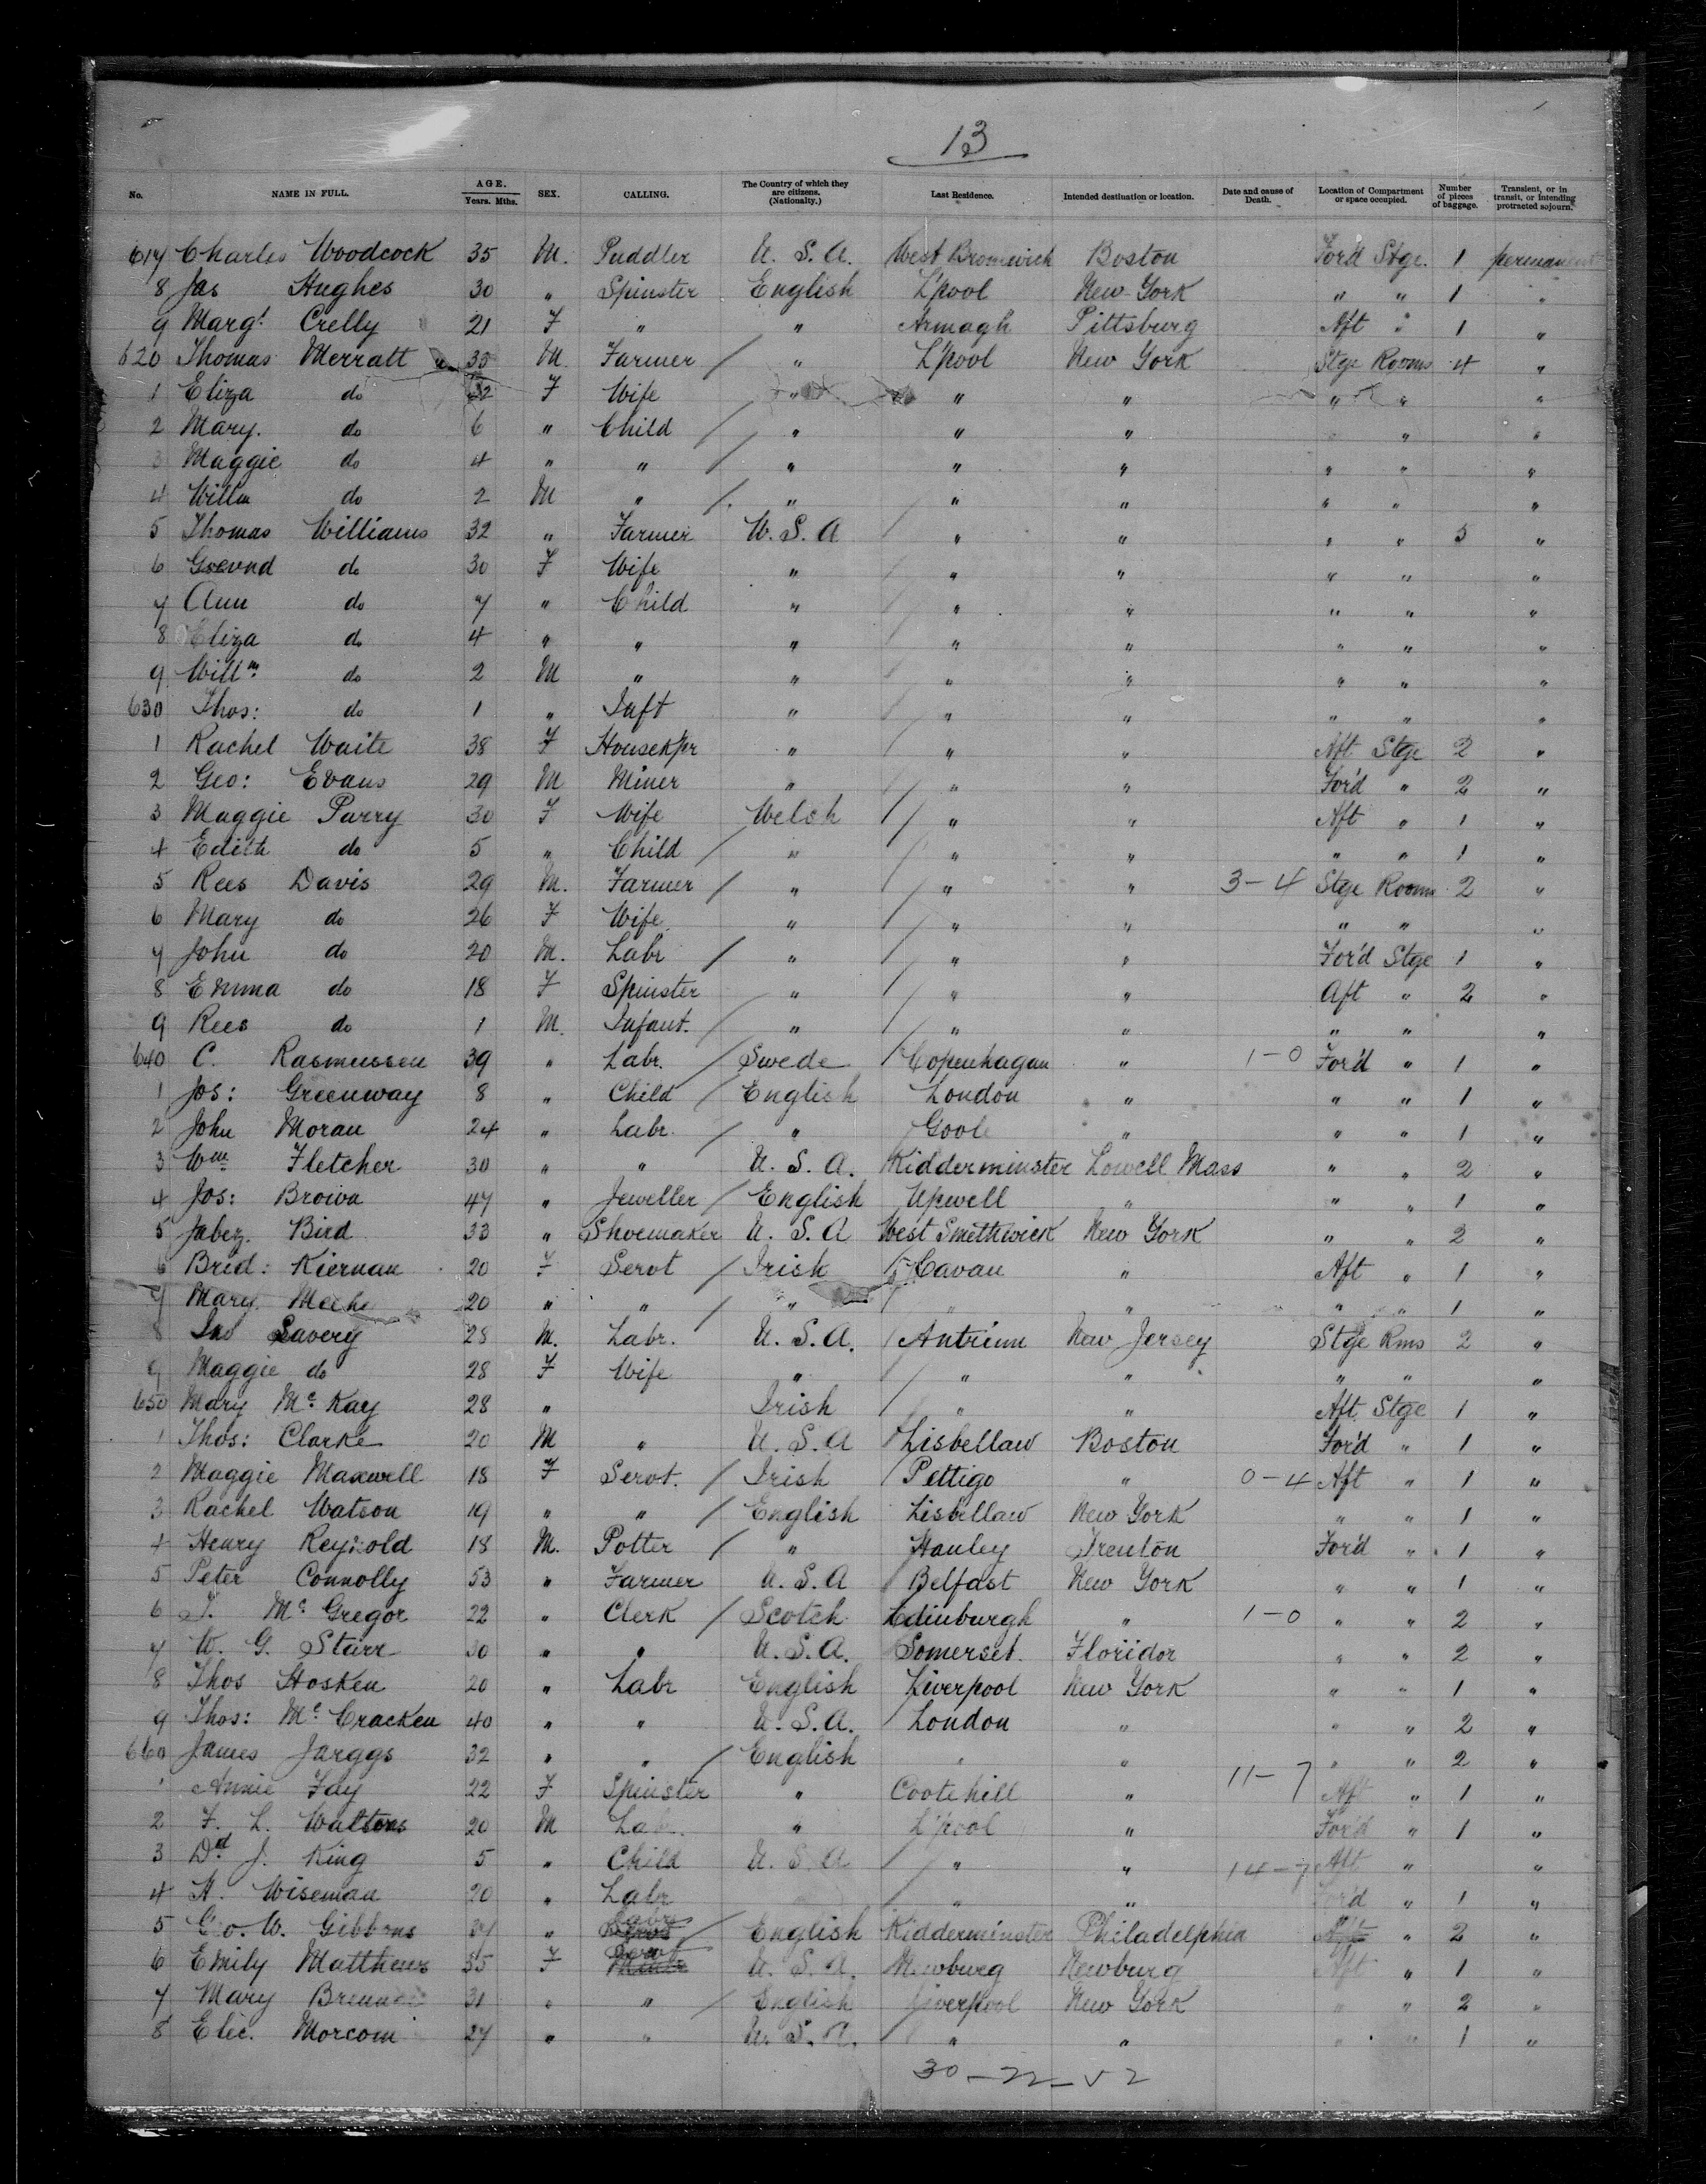 13
No. NAME IN FULL. AGE. Years. Mths. SEX. CALLING. The Country of which they are citizens. (Nationality.) Last Residence. Intended destination or location. Date and cause of Death. Location of Compartment or space occupied. Number of pieces of baggage. Transient, or in transit, or intending protracted sojourn.
617 Charles Woodcock 35 M. Puddler U. S. A. West Bromwich Boston For'd Stge. 1 permanent
8 Jas Hughes 30 " Spinster English L'pool New York " " 1 "
9 Margt. Crelly 21 F " " Armagh Pittsburg Aft " 1 "
620 Thomas Merratt 35 M Farmer / " L'pool New York Stge Rooms 4 "
1 Eliza do 32 F Wife " " " " " "
2 Mary. do 6 " Child / " " " " "
3 Maggie do 4 " " / " " " " " "
4 Willm do 2 M " / " " " " " "
5 Thomas Williams 32 " Farmer U. S. A / " " " " 5 "
6 do 30 F Wife " / " " " " "
7 Ann do 7 " Child " / " " " " "
8 Eliza do 4 " " " / " " " " "
9 Willm do 2 M " " / " " " " "
630 Thos: do 1 " Inft " / " " " " "
1 Rachel Waite 38 F Housekpr " / " " Aft Stge 2 "
2 Geo: Evans 29 M Miner " / " " For'd " 2 "
3 Maggie Parry 30 F Wife Welsh / " " Aft " 1 "
4 Edith do 5 " Child / " / " " " " 1 "
5 Rees Davis 29 M. Farmer / " / " " 3-4 Stge Rooms 2 "
6 Mary do 26 F Wife " / " " " " "
7 John do 20 M. Labr / " / " " For'd Stge 1 "
8 Emma do 18 F Spinster " / " " Aft " 2 "
9 Rees do 1 M. Infant. / " / " " " " "
640 C. Rasmussen 39 " Labr. / Swede / Copenhagan " 1-0 For'd " 1 "
1 Jos: Greenway 8 " Child / English London " " " 1 "
2 John Moran 24 " Labr. / " Goole " " " 1 "
3 Wm Fletcher 30 " " U. S. A. Kidderminster Lowell Mass " " 2 "
4 Jos: Brown 47 " Jeweller / English Upwell " " " 1 "
5 Jabez. Bird 33 " Shoemaker U. S. A West Smethwick New York " " 2 "
6 Brid: Kiernan 20 F Servt / Irish / Cavan " Aft " 1 "
7 Mary 20 " " / " / " " " " 1 "
8 Savery 28 M. Labr. U. S. A. / Antrium New Jersey Stge Rms 2 "
9 Maggie do 28 F Wife " / " " " " "
650 Mary Mc Kay 28 " Irish / " " Aft Stge 1 "
1 Thos: Clarke 20 M " U. S. A Lisbellaw Boston For'd " 1 "
2 Maggie Maxwell 18 F Servt. / Irish / Pettigo " 0-4 Aft " 1 "
3 Rachel Watson 19 " " / English Lisbellaw New York " " 1 "
4 Henry Reynold 18 M. Potter / " Hanley Trenton For'd " 1 "
5 Peter Connolly 53 " Farmer U. S. A / Belfast New York " " 1 "
6 Mc Gregor 22 " Clerk / Scotch Edinburgh " 1-0 " " 2 "
7 W. G. Starr 30 " " U. S. A. Somerset. Floridor " " 2 "
8 Thos Hosken 20 " Labr English Liverpool New York " " 1 "
9 Thos: Mc Cracken 40 " " U. S. A. London " " " 2 "
660 James Jarggs 32 " " / English " " " " 2 "
1 Annie Fay 22 F Spinster " Cootehill " 11-7 Aft " 1 "
2 F. L. Waltons 20 M Labr. " L'pool " For'd " 1 "
3 Dd J. King 5 " Child U. S. A / " " 14-7 Aft " "
4 H. Wiseman 20 " Labr " " For'd " 1 "
5 Geo. W. Gibbons " Labr / English Kidderminster Philadelphia " 2 "
6 Emily Matthews 35 F Servt U. S. A. Newburg Newburg Aft " 1 "
7 Mary 31 " " / English Liverpool New York " " 2 "
8 Elic. Morcom 27 " " U. S. A. / " " " " 1 "
30-22-52